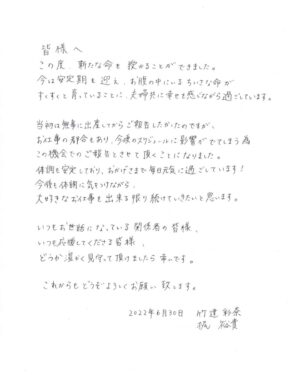 皆様へ
この度 新たな命を授かることができました。
今は安定期も迎え、お腹の中にいるちいさな命が
すくすくと育っていることに、夫婦共に幸せを感じながら過ごしています。
当初は無事に出産してからご報告したかったのですが、
お仕事の都合もあり、今後のスケジュールに影響がでてしまう為
この機会でのご報告とさせて頂くことになりました。
体調も安定しており、おかげさまで毎日元気に過ごしています!
今後も体調に気をつけながら、
大好きなお仕事も出来る限り続けていきたいと思います。
いつもお世話になっている関係者の皆様、
いつも応援してくださる皆様、
どうか温かく見守って頂けましたら幸いです。
これからもどうぞよろしくお願い致します。
2022年6月30日 竹達 彩奈
梶 裕貴